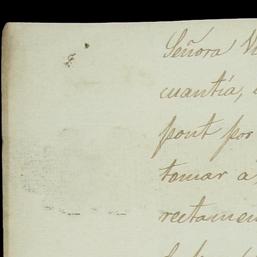 Señora V
cuantía,
pont por
tomar a
rectamen